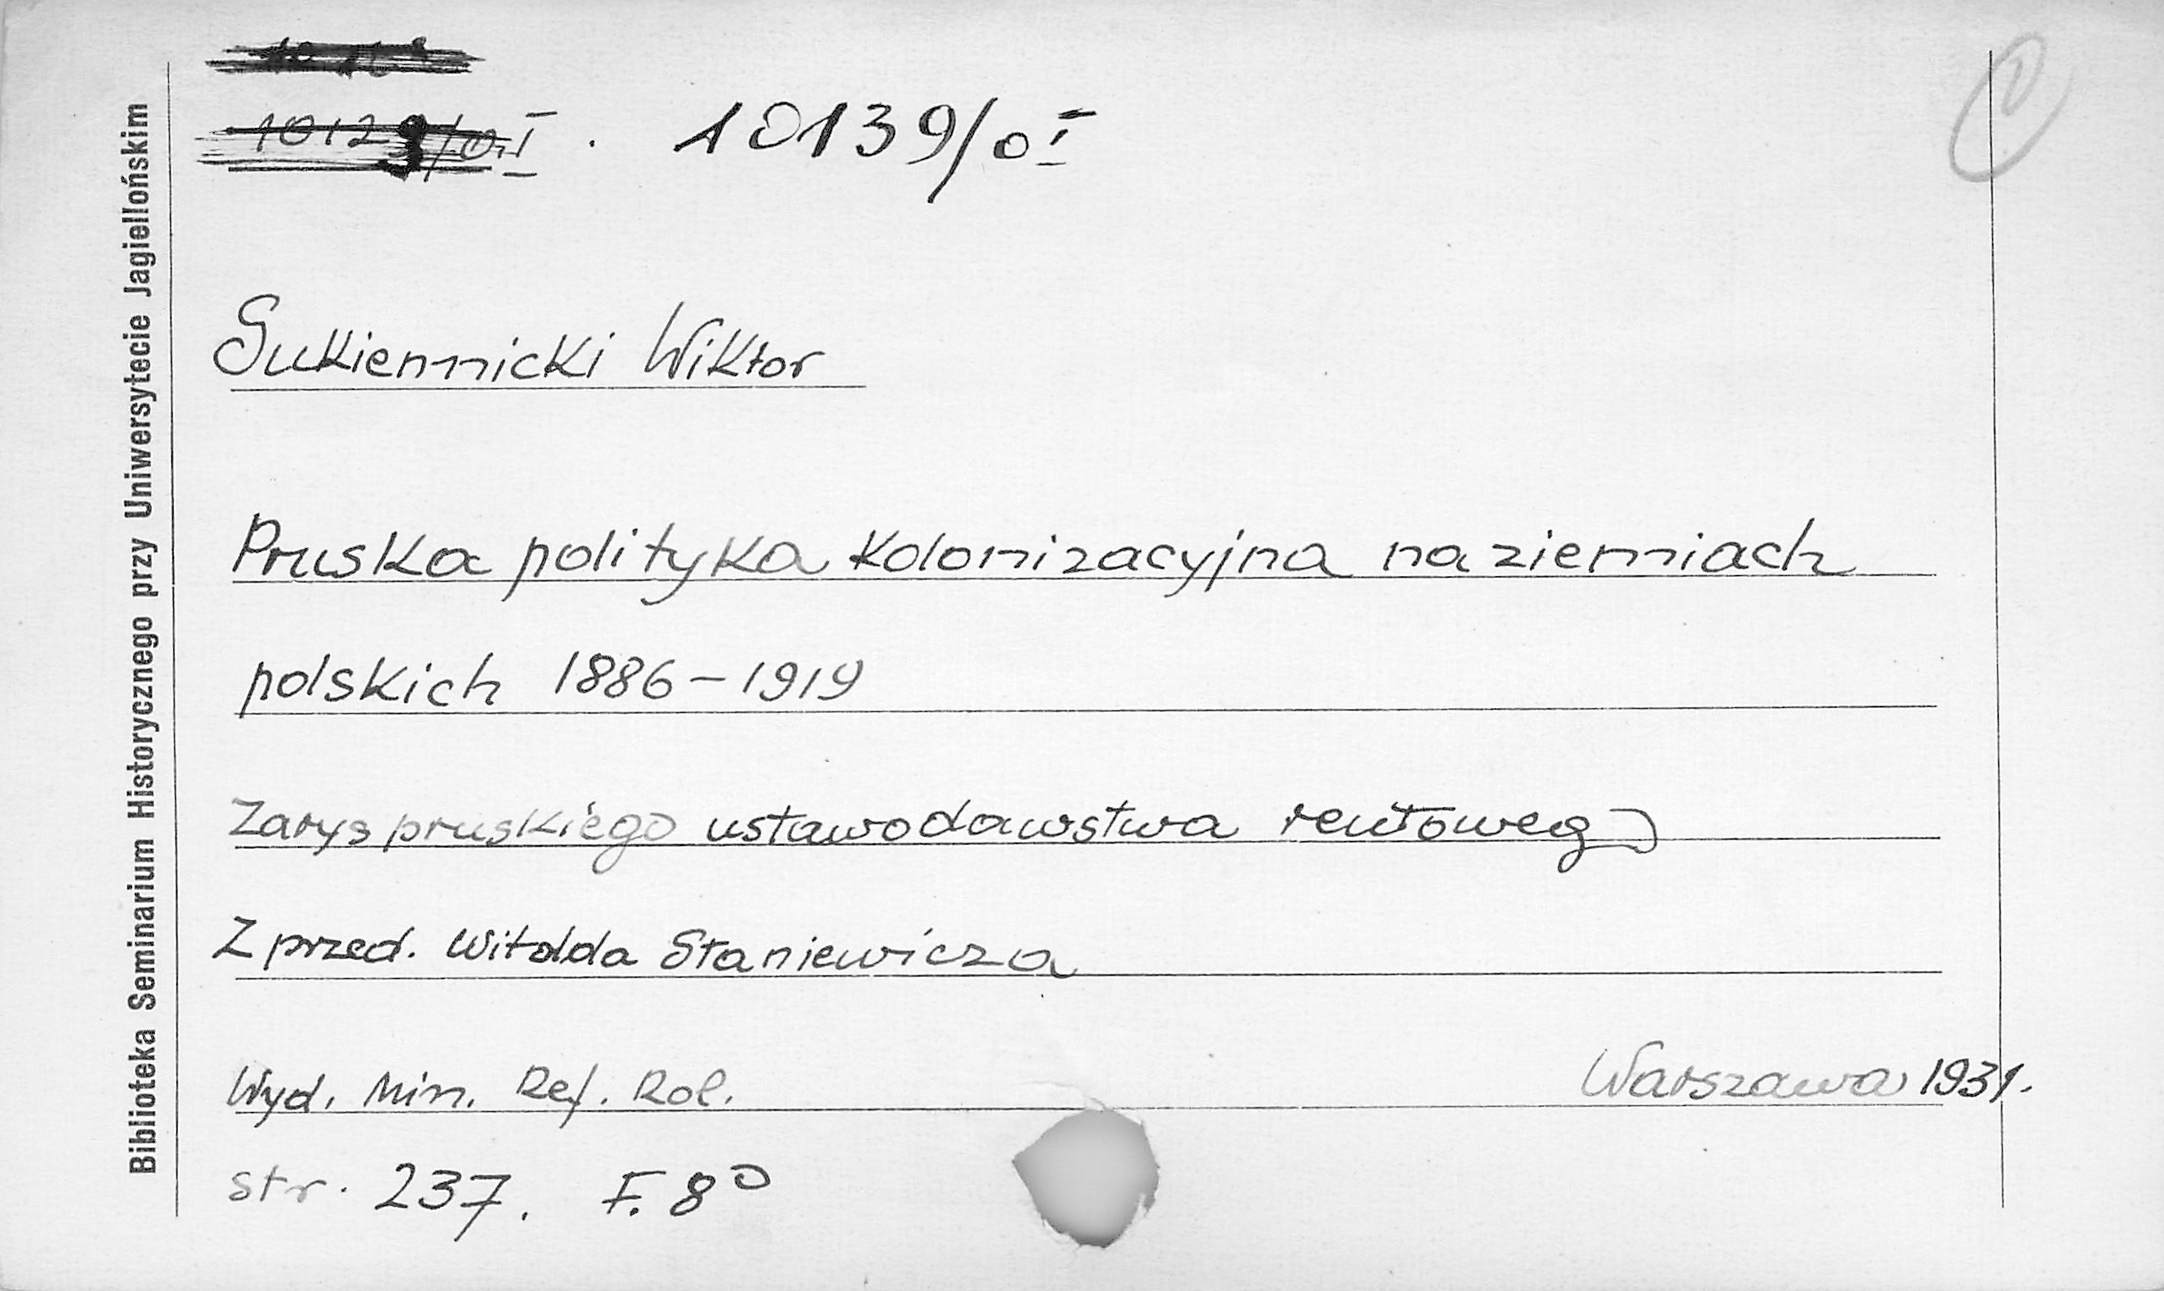 10129/o.I . 10139/o I
Sukiennicki Wiktor
Pruska polityka kolonizacyjna na ziemiach
polskich 1886–1919
Zarys pruskiego ustawodawstwa rentowego
Z przed. Witolda Staniewicza
Wyd. Min. Ref. Rol. Warszawa 1931.
str. 237. F. 8°
Biblioteka Seminarium Historycznego przy Uniwersytecie Jagiellońskim